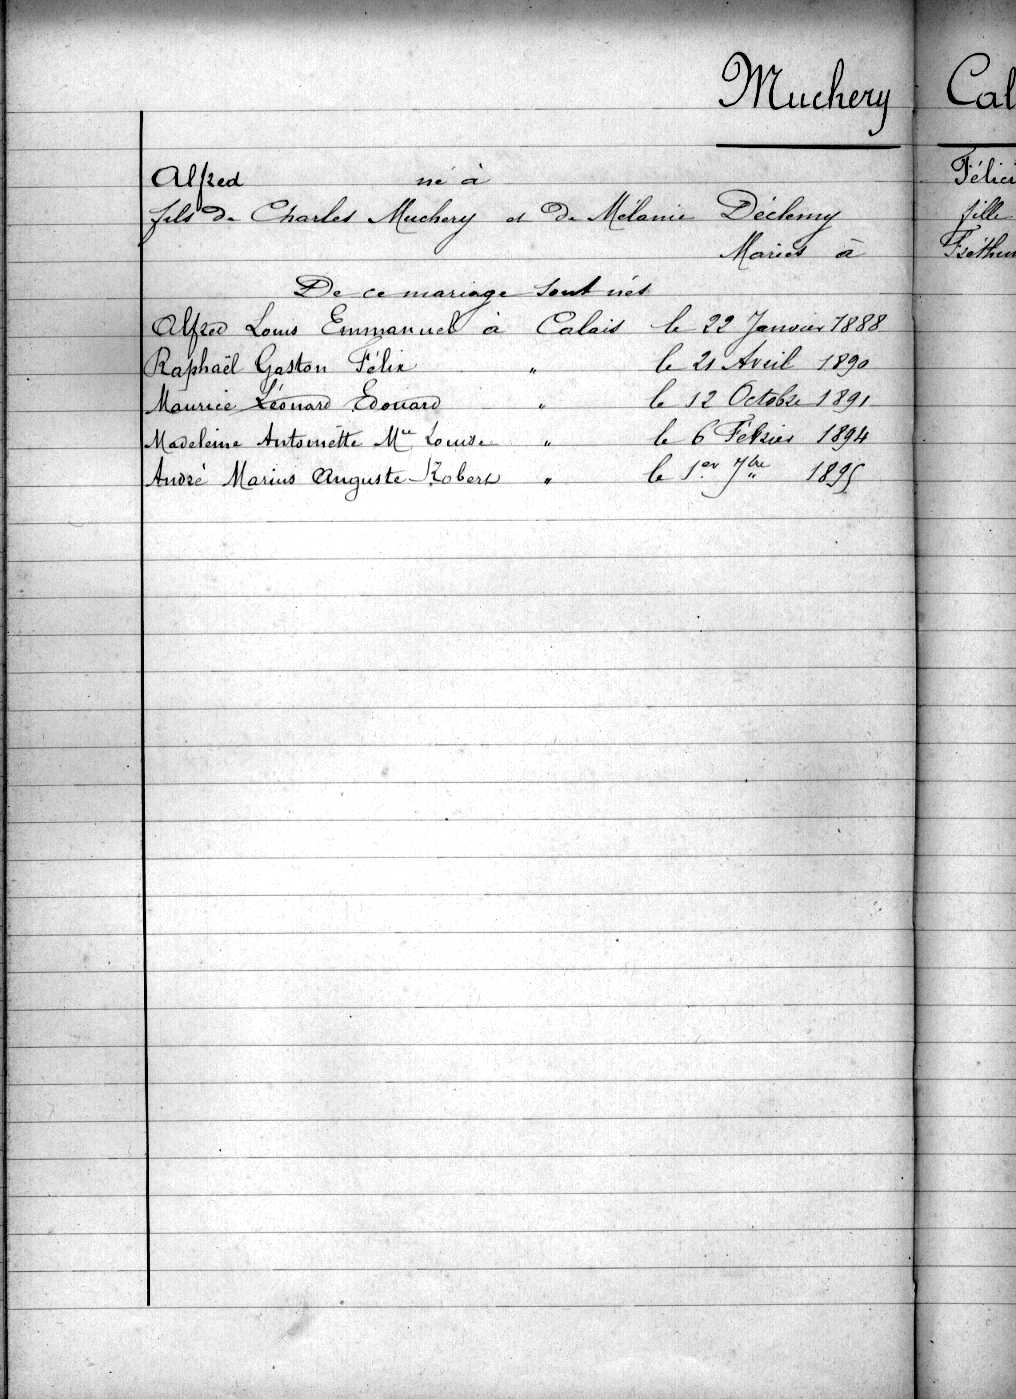 Muchery
Alfred né à
fils de Charles Muchery et de Mélanie Déclemy
Mariés à
De ce mariage sont nés
Alfred Louis Emmanuel à Calais le 22 Janvier 1888
Raphaël Gaston Félix " le 21 Avril 1890
Maurice Léonard Edouard " le 12 Octobre 1891
Madeleine Antoinette Mie Louise " le 6 Février 1894
André Marius Auguste Robert " le 1er 7bre 1895
Cal
Félici
fille